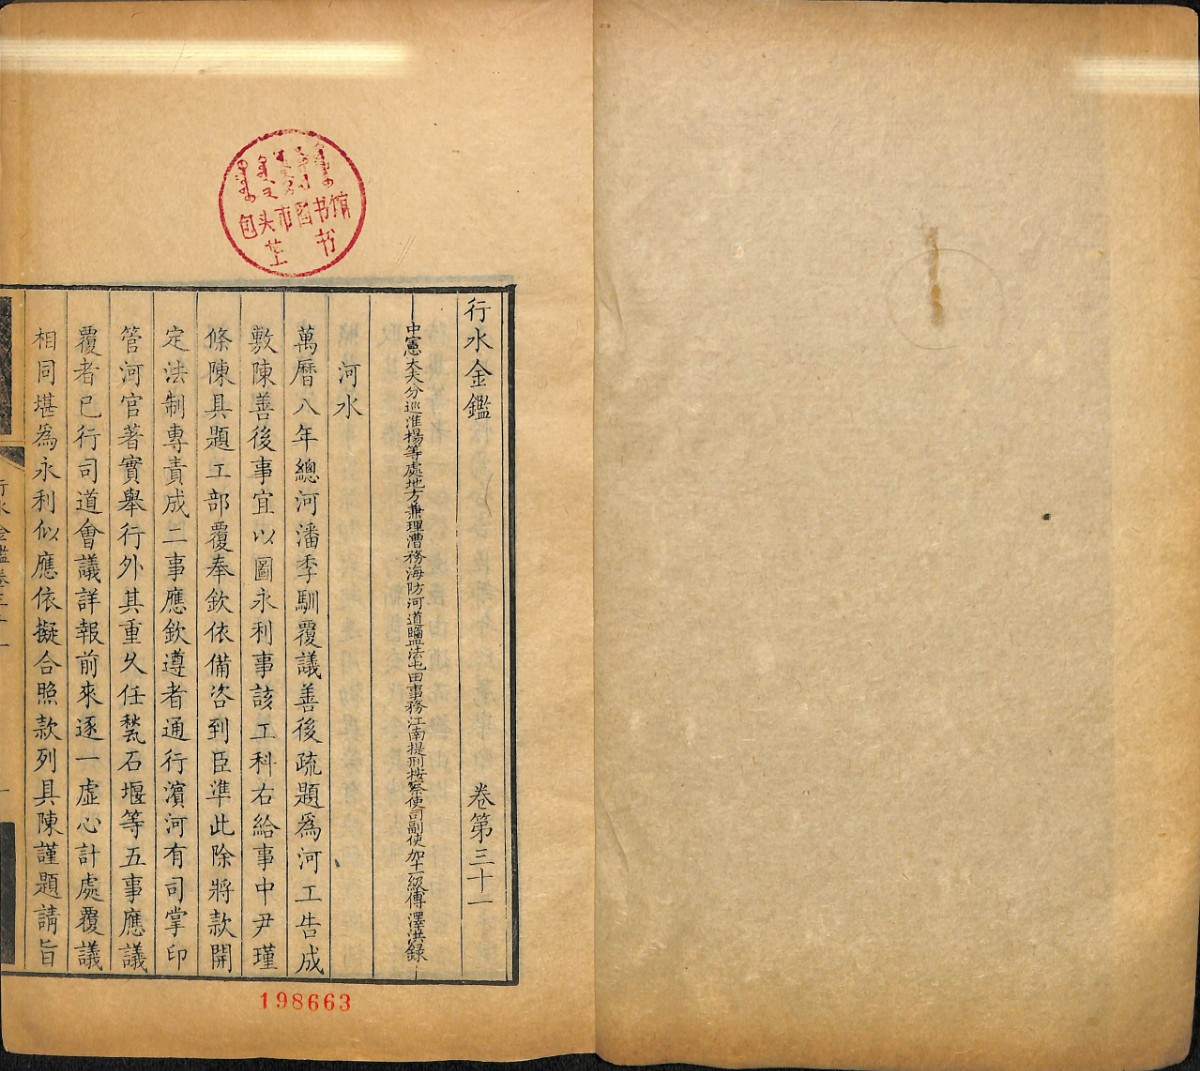 行水金鑑 卷第三十一
中憲大夫分巡淮揚等處地方兼理漕務海防河道鹽法屯田事務江南提刑按察使司副使加十一級傅澤洪錄
河水
萬曆八年總河潘季馴覆議善後疏題為河工告成
敷陳善後事宜以圖永利事該工科右給事中尹瑾
條陳具題工部覆奉欽依備咨到臣準此除將款開
定法制專責成二事應欽遵者通行濱河有司掌印
管河官著實舉行外其重久任甃石堰等五事應議
覆者已行司道會議詳報前來逐一虛心計處覆議
相同堪為永利似應依擬合照款列具陳謹題請旨
行水金鑑卷三十一
一
包头市图书馆
书
198663